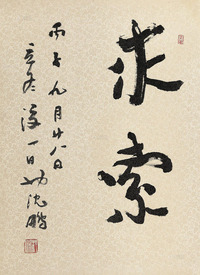 求索
丙子九月廿八日
立冬後一日
沈鹏